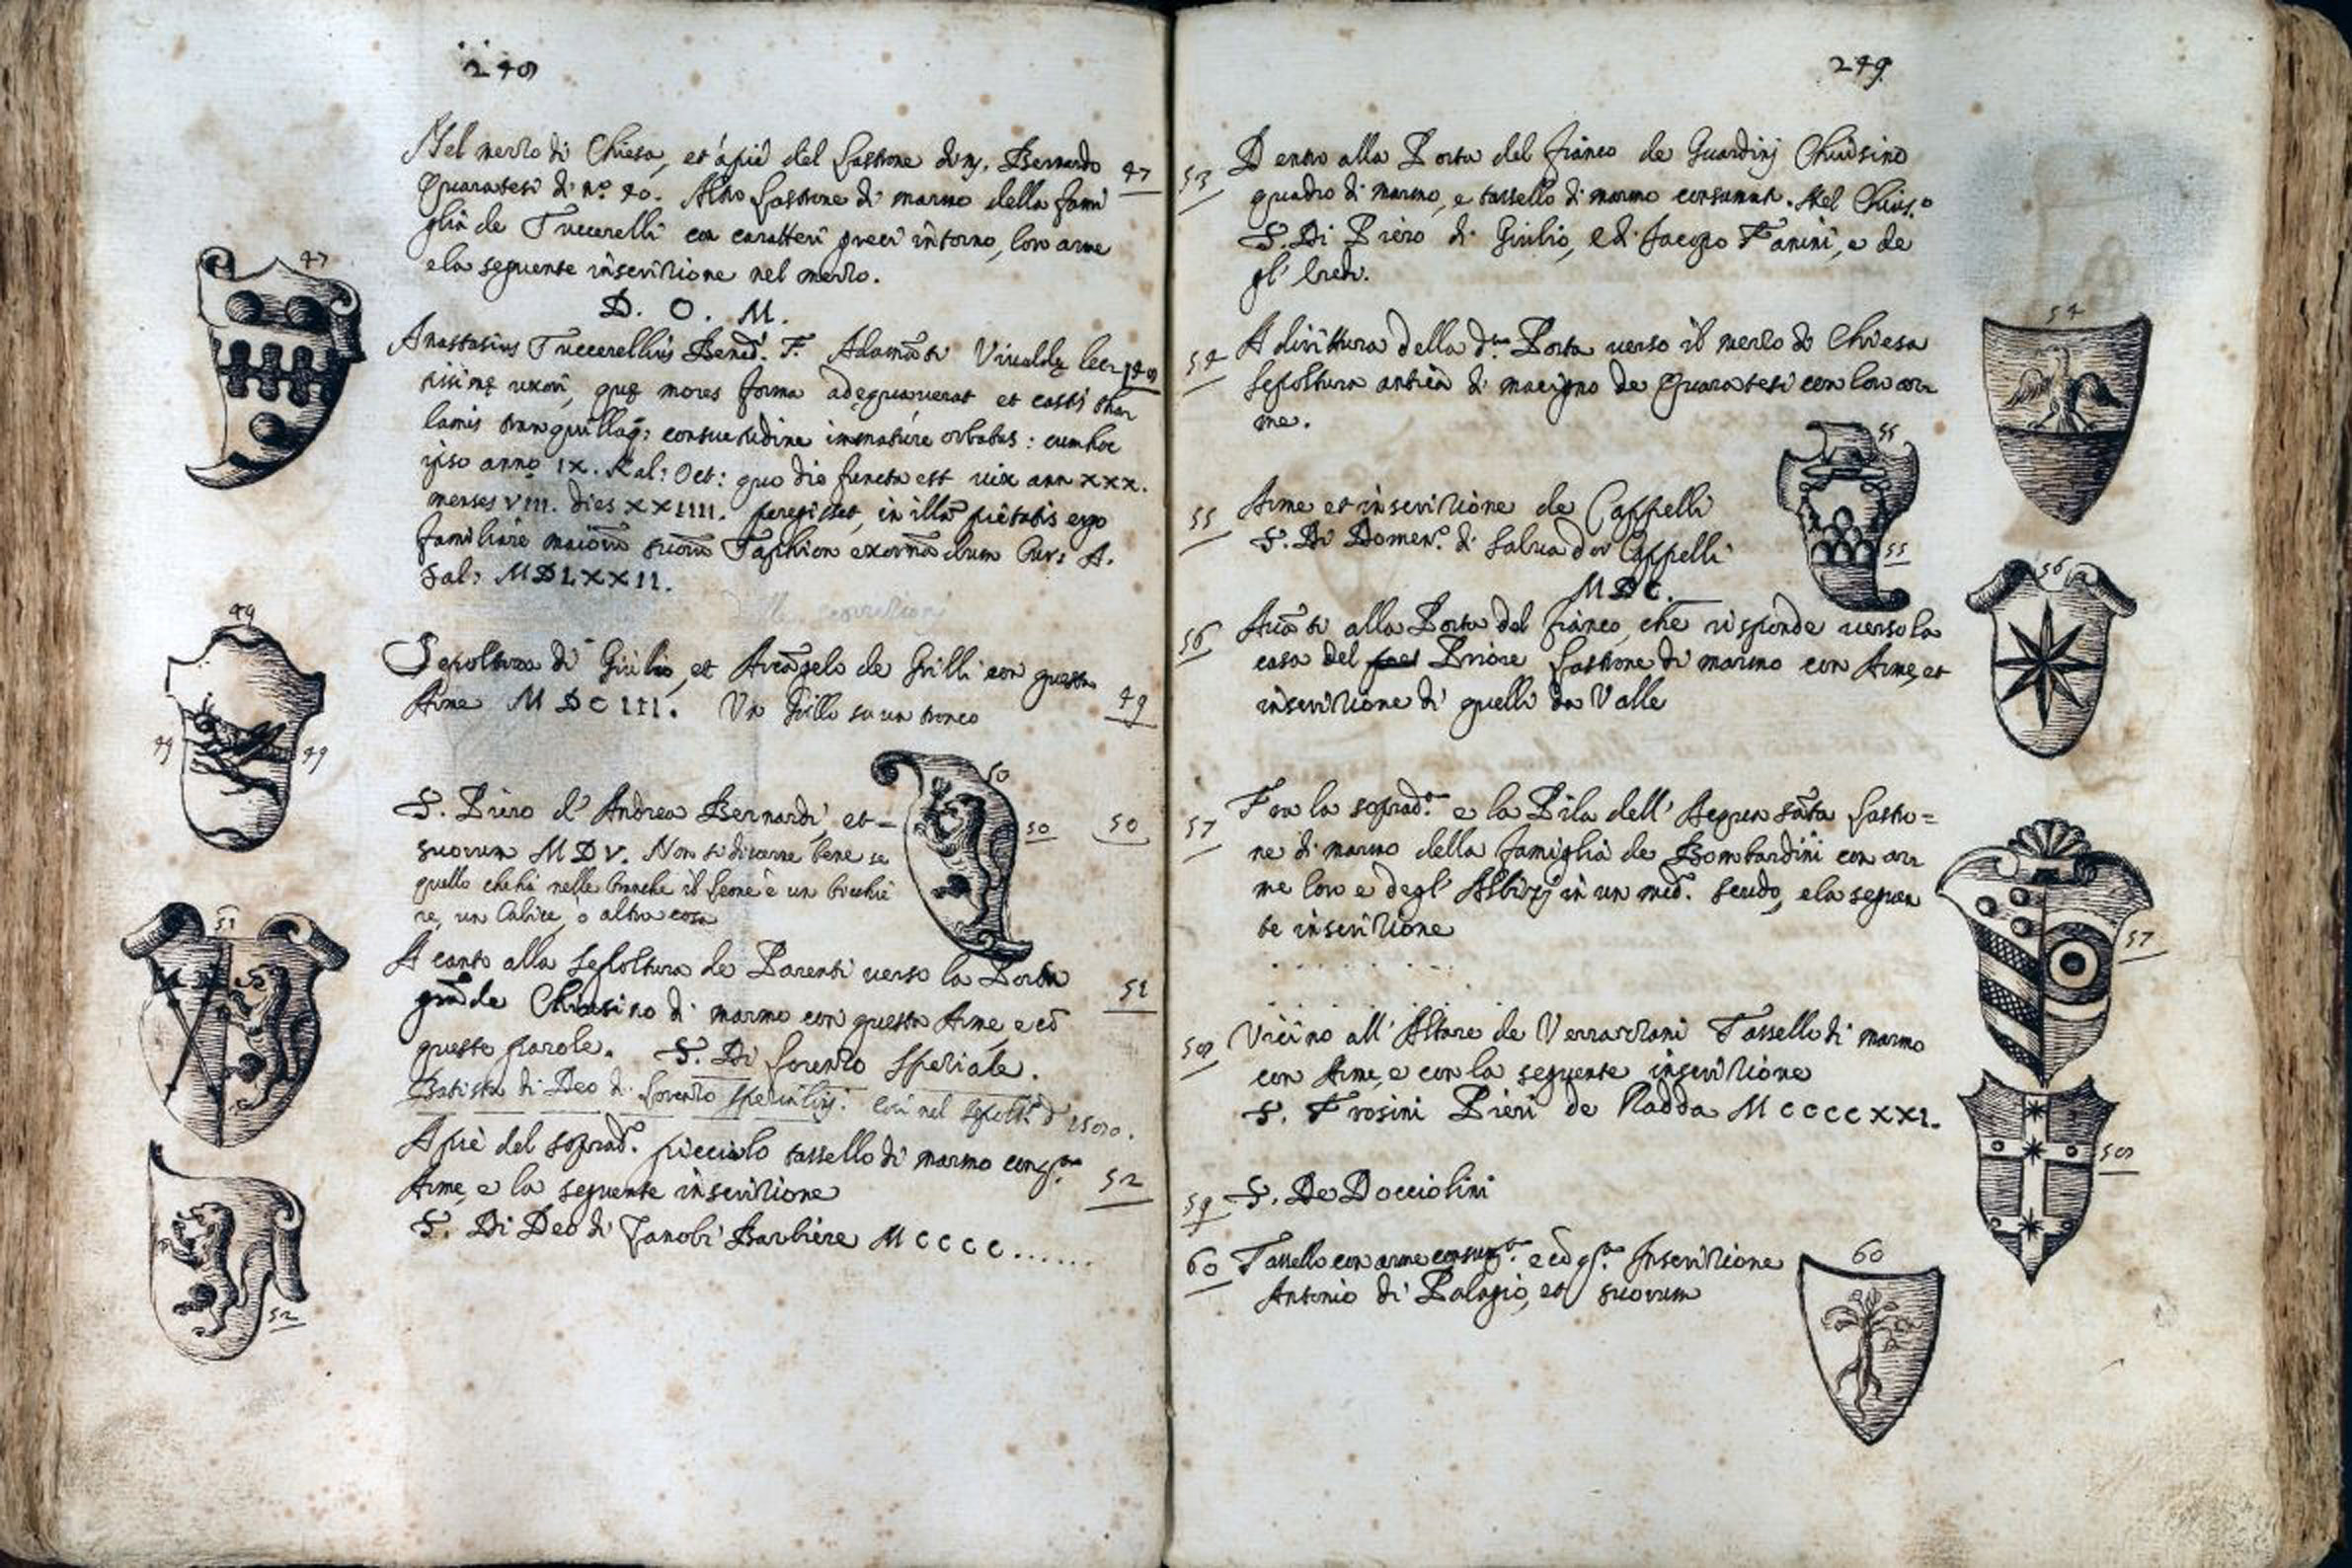 248
47
Nel mezzo di Chiesa, et à piè del Lastrone di n. Bernardo
Quaratesi di n.º 40. Altro Lastrone di marmo della fami
glia de Tuccerelli con caratteri greci intorno, loro arme
e la seguente inscrizione nel mezzo.
D. O. M.
Anastasius Tuccerellius Bened. F. Adamãti Vivaldę lec
tissimę uxori, quę mores forma adęquaverat et casti tha
lamis tranquillaq; consuetudine immature orbatus: cum hoc
ipso anno IX. Kal: Oct: quo die functa est vix ann XXX.
menses VIII. dies XXIIII. peregisset, in illã pietatis ergo
familiare maiorũ suorũ Taphion exornãdum Cur: A.
Sal: MDLXXII.
49
Sepoltura di Giulio, et Arcãgelo de Grilli con questa
Arme MDCIII. Un Grillo su un tronco
49
49
49
S. Piero d' Andrea Bernardi et
suorum MDV. Non si discerne bene se
quello che hà nelle branche il Leone è un bicchie
re, un Calice, o altra cosa
50
50
50
A canto alla Sepoltura de Parenti verso la Porta
grãde Chiusino di marmo con questa Arme, e cõ
queste parole. S. Di Lorenzo Speziale.
Batista di Deo di Lorenzo
51
51
A piè del soprad.º picciolo tassello di marmo con q.ta
Arme, e la seguente inscrizione
S. Di Deo di Zanobi Barbiere MCCCC......
52
52
249
53
Dentro alla Porta del fianco de Guardinj Chiusino
quadro di marmo, e tassello di marmo consumat. Nel Chius.o
S. Di Piero di Giulio, e di Jacopo Fanini, e de
gl' Eredi.
54
54
A dirittura della d.ta Porta verso il mezzo di Chiesa
Sepoltura antica di macigno de Quaratesi con loro ar
me.
55
55
55
Arme et inscrizione de Cappelli
S. Di Domen.º di Salvador Cappelli
MDC.
56
56
Avãti alla Porta del fianco, che risponde verso la
casa del Priore Lastrone di marmo con Arme, et
inscrizione di quelli da Valle
57
57
Fra la soprad.ª e la Pila dell' Acqua Sãta Lastro=
ne di marmo della famiglia de Bombardini con ar
me loro e degl' Albizj in un med.º scudo, e la seguen
te inscrizione
. . . . . . .
58
58
Vicino all' Altare de Verrazzani Tassello di marmo
con Arme, e con la seguente inscrizione
S. Frosini Pieri de Radda MCCCCXXI.
59
S. De Docciolini
60
60
Tassello con arme consum.ta e cõ q.ta Inscrizione
Antonio di Palagio, et suorum